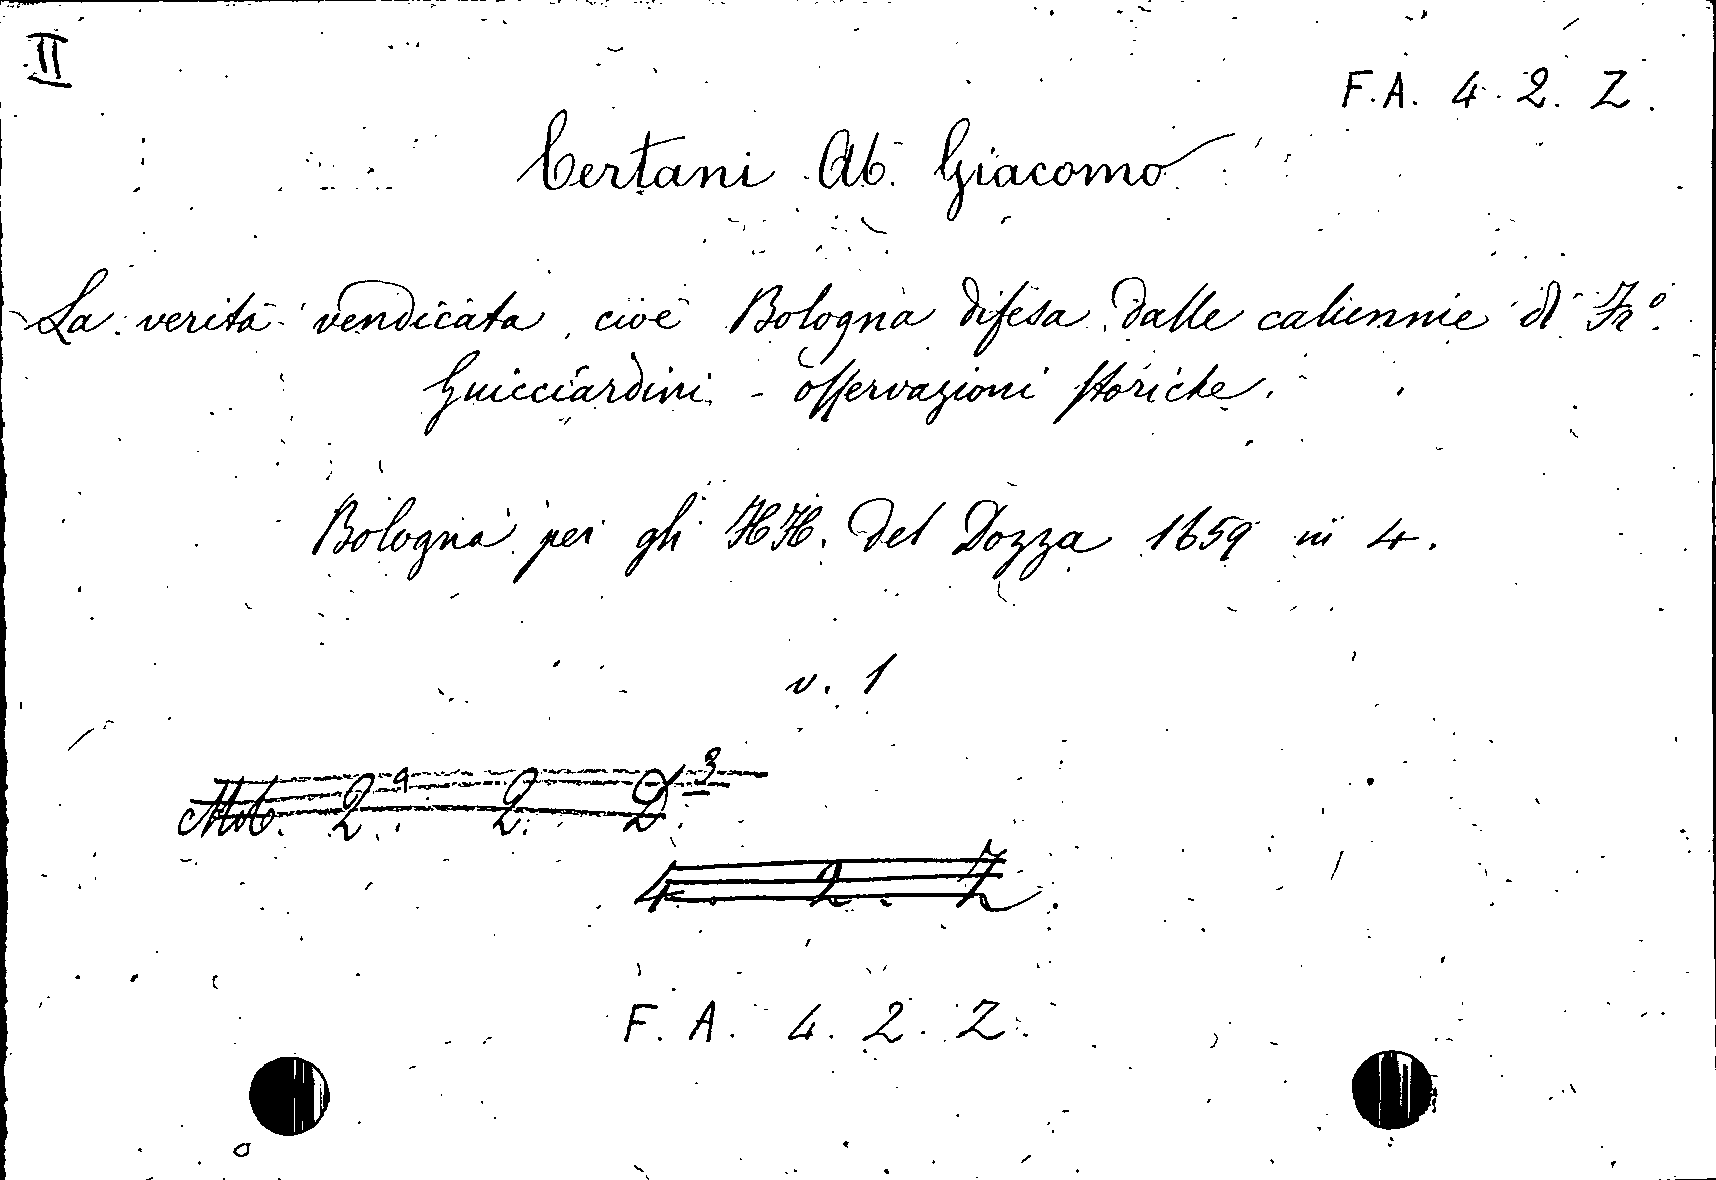 II
F. A. 4. 2. Z.
Certani Ab. Giacomo
La verità vendicata cioè Bologna difesa dalle calunnie di Fr.º
Guicciardini - osservazioni storiche.
Bologna per gli HH. del Dozza 1659 in 4.
v. 1
Mob. 2.ª 2. D.3
4. 2. Z.
F. A. 4. 2. Z.